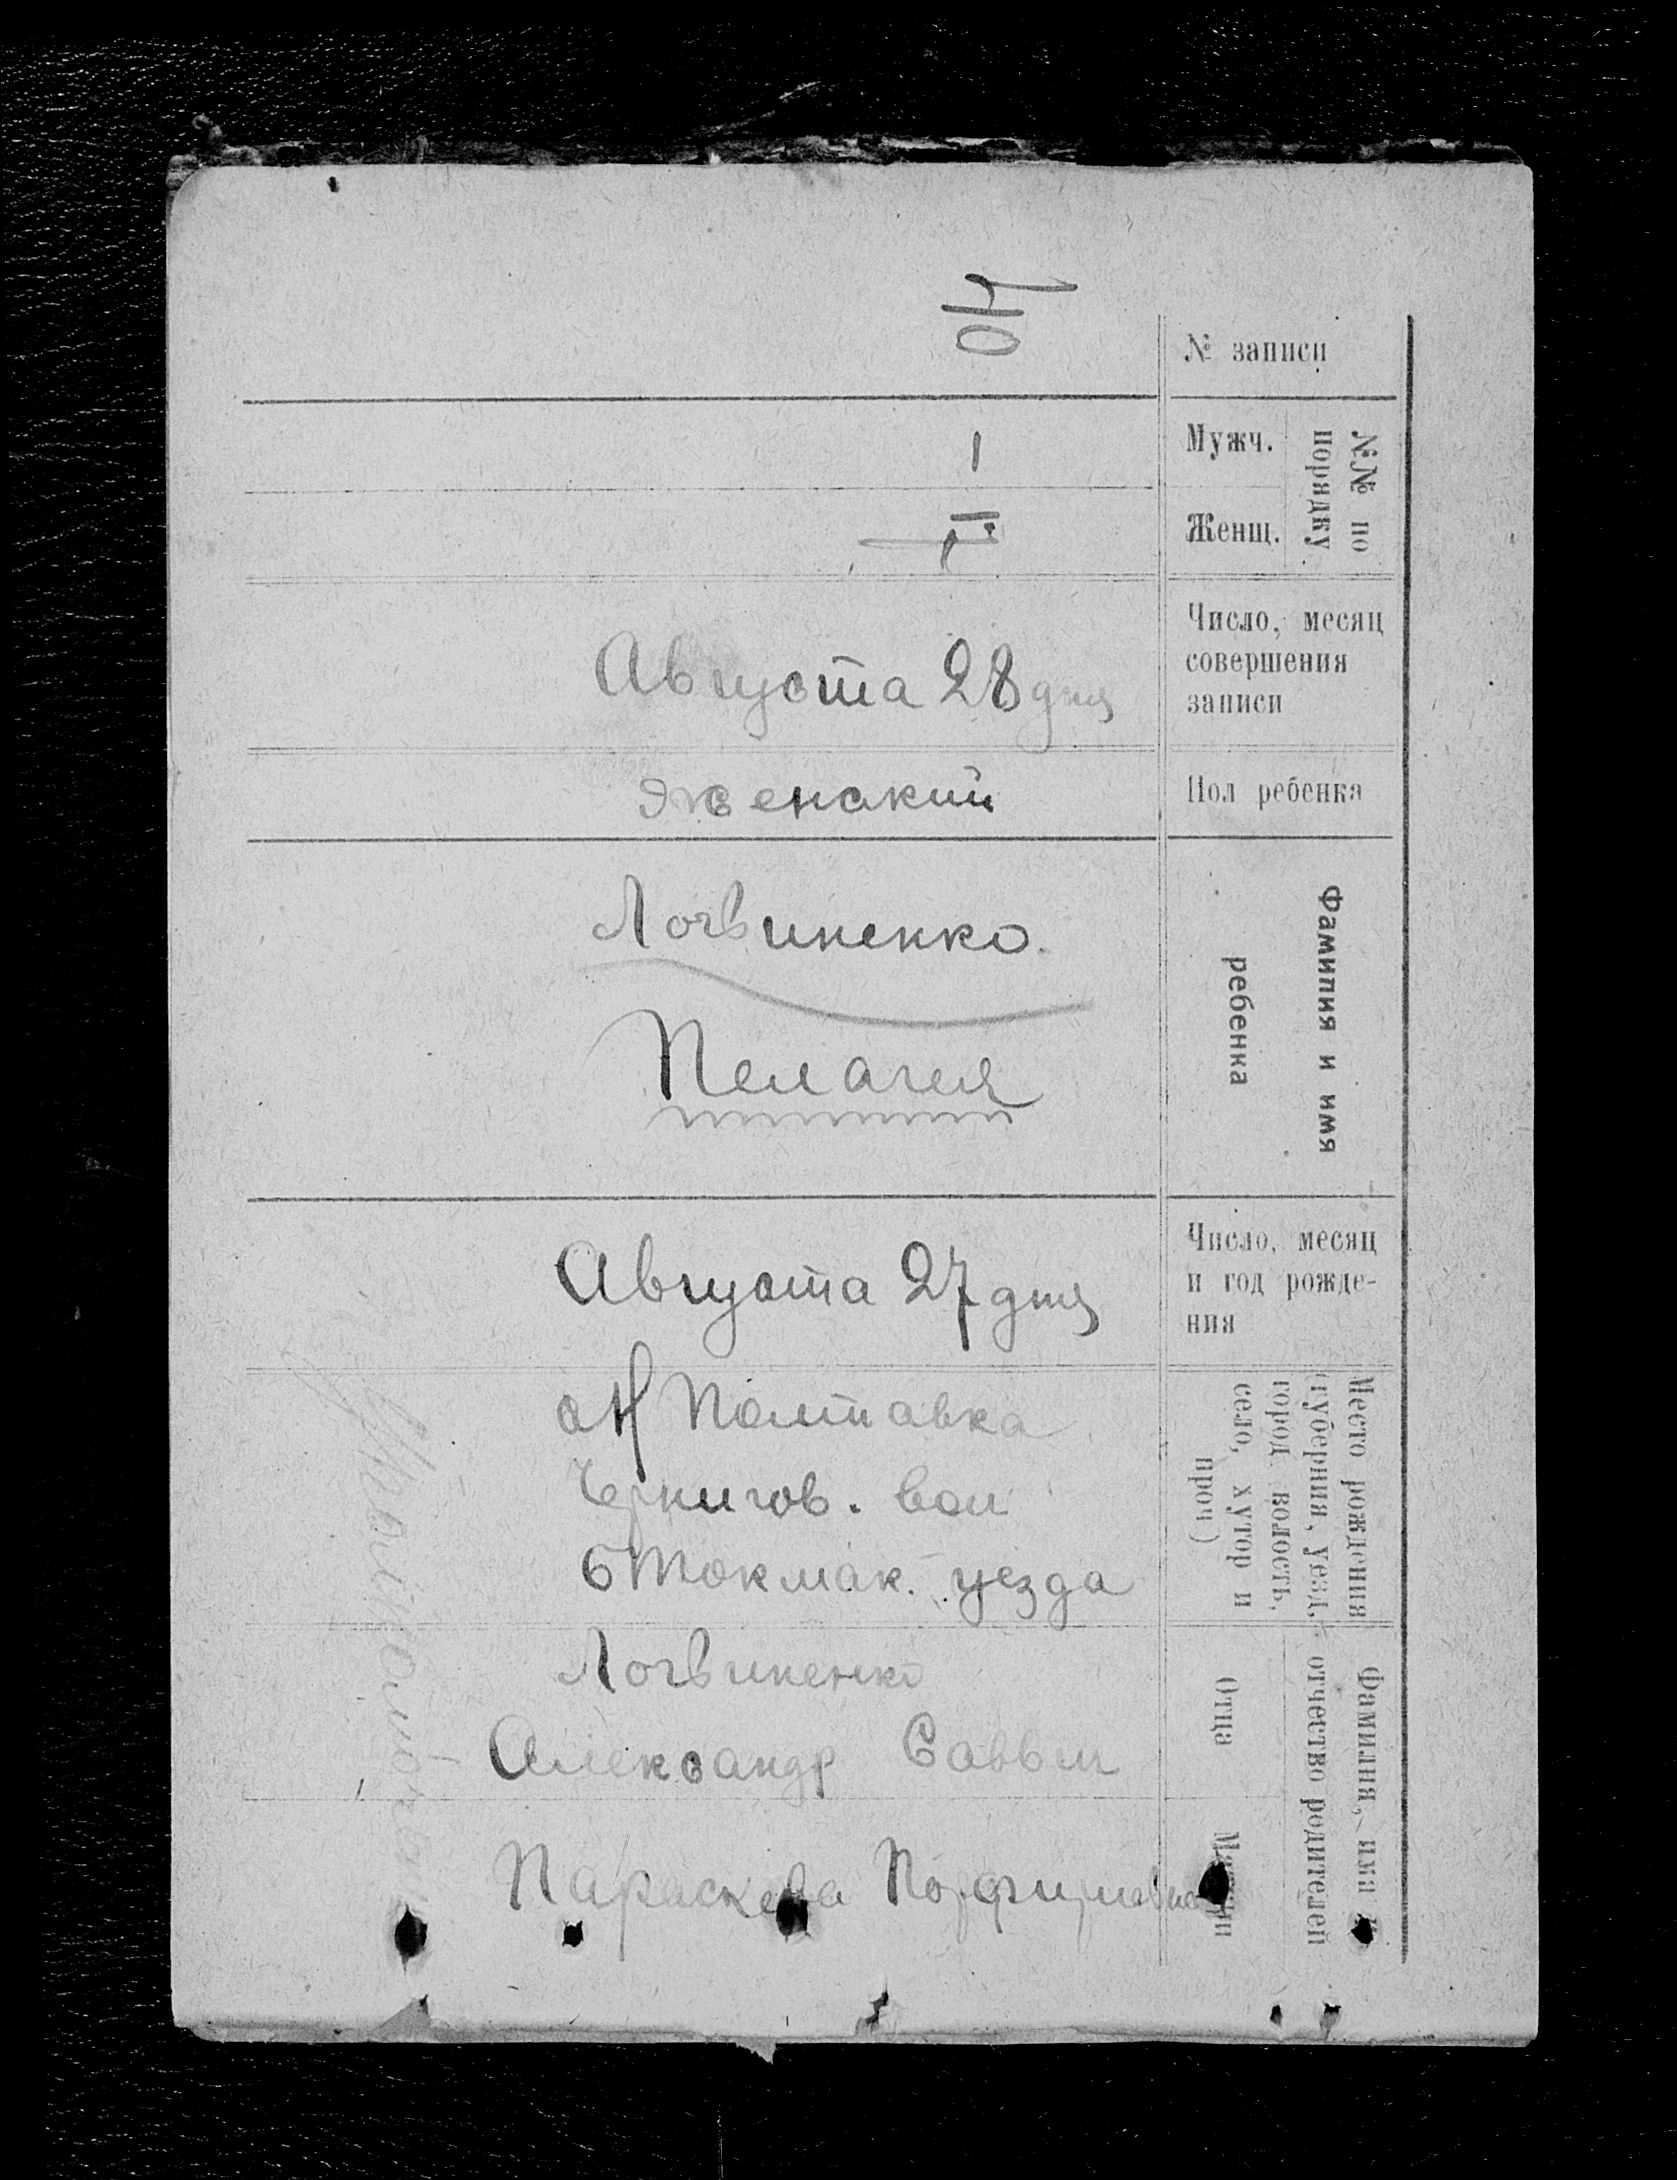 40
№ записи
№№ по порядку
Мужч.
1
Женщ.
Число, месяц
совершения
записи
Августа 28 дня
Пол ребенка
женский
Фамилия и имя
ребенка
Логвиненко
Пелагея
Число, месяц
и год рожде-
ния
Августа 27 дня
Место рождения
(губерния, уезд,
город волость,
село, хутор и
проч)
Н Полтавка
Чернигов. вол
Б Токмак. уезда
Фамилия, имя
отчество родителей
Отца
Логвиненко
Александр Саввы
Матери
Параскева Порфирьевна